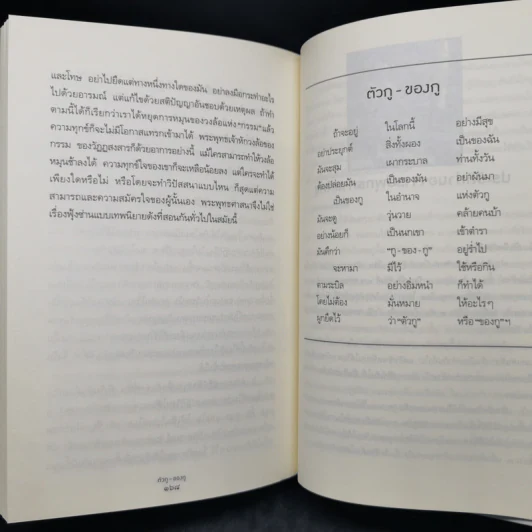 และโทษ อย่าไปยึดแต่ทางหนึ่งทางใดของมัน อย่าลงมือกระทำอะไร
ไปด้วยอารมณ์ แต่แก้ไขด้วยสติปัญญาอันชอบด้วยเหตุผล ถ้าทำ
ตามนี้ได้ก็เรียกว่าเราได้หยุดการหมุนของวงล้อแห่ง "กรรม" แล้ว
ความทุกข์ก็จะไม่มีโอกาสแทรกเข้ามาได้ พระพุทธเจ้าหักวงล้อของ
กรรม ของวัฏฏสงสารก็ด้วยอาการอย่างนี้ แม้ใครสามารถทำให้วงล้อ
หมุนช้าลงได้ ความทุกข์ใจของเขาก็จะเหลือน้อยลง แต่ใครจะทำได้
เพียงใดหรือไม่ หรือโดยจะทำวิปัสสนาแบบไหน ก็สุดแต่ความ
สามารถและความสมัครใจของผู้นั้นเอง พระพุทธศาสนาจึงไม่ใช่
เรื่องฟุ้งซ่านแบบเทพนิยายดังที่สอนกันทั่วไปในสมัยนี้
ตัวกู - ของกู
๑๖๘
ตัวกู - ของกู
ถ้าจะอยู่ ในโลกนี้ อย่างมีสุข
อย่าประยุกต์ สิ่งทั้งผอง เป็นของฉัน
มันจะสุม เผากระบาล ท่านทั้งวัน
ต้องปล่อยมัน เป็นของมัน อย่าผันมา
เป็นของกู ในอำนาจ แห่งตัวกู
มันจะดู วุ่นวาย คล้ายคนบ้า
อย่างน้อยก็ เป็นนกเขา เข้าตำรา
มันคึกว่า "กู - ของ - กู" อยู่ร่ำไป
จะหามา มีไว้ ใช้หรือกิน
ตามระบิล อย่างอิ่มหนำ ก็ทำได้
โดยไม่ต้อง มั่นหมาย ให้อะไรๆ
ผูกยึดไว้ ว่า "ตัวกู" หรือ "ของกู" ฯ